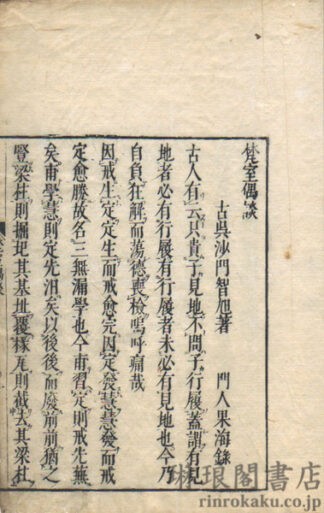 梵室偶談
古吳沙門智旭著　門人果海錄
古人有云只貴子見地不問子行履蓋謂有見
地者必有行履有行履者未必有見地也今乃
自負狂解而蕩德喪檢嗚呼痛哉
因戒生定定生而戒愈完因定發慧慧發而戒
定愈勝故名三無漏學也今甫習定則戒先蕪
矣甫學慧則定先汨矣以後後而廢前前猶之
豎梁柱則掘圯其基址覆椽瓦則截去其梁柱
琳琅閣書店
rinrokaku.co.jp